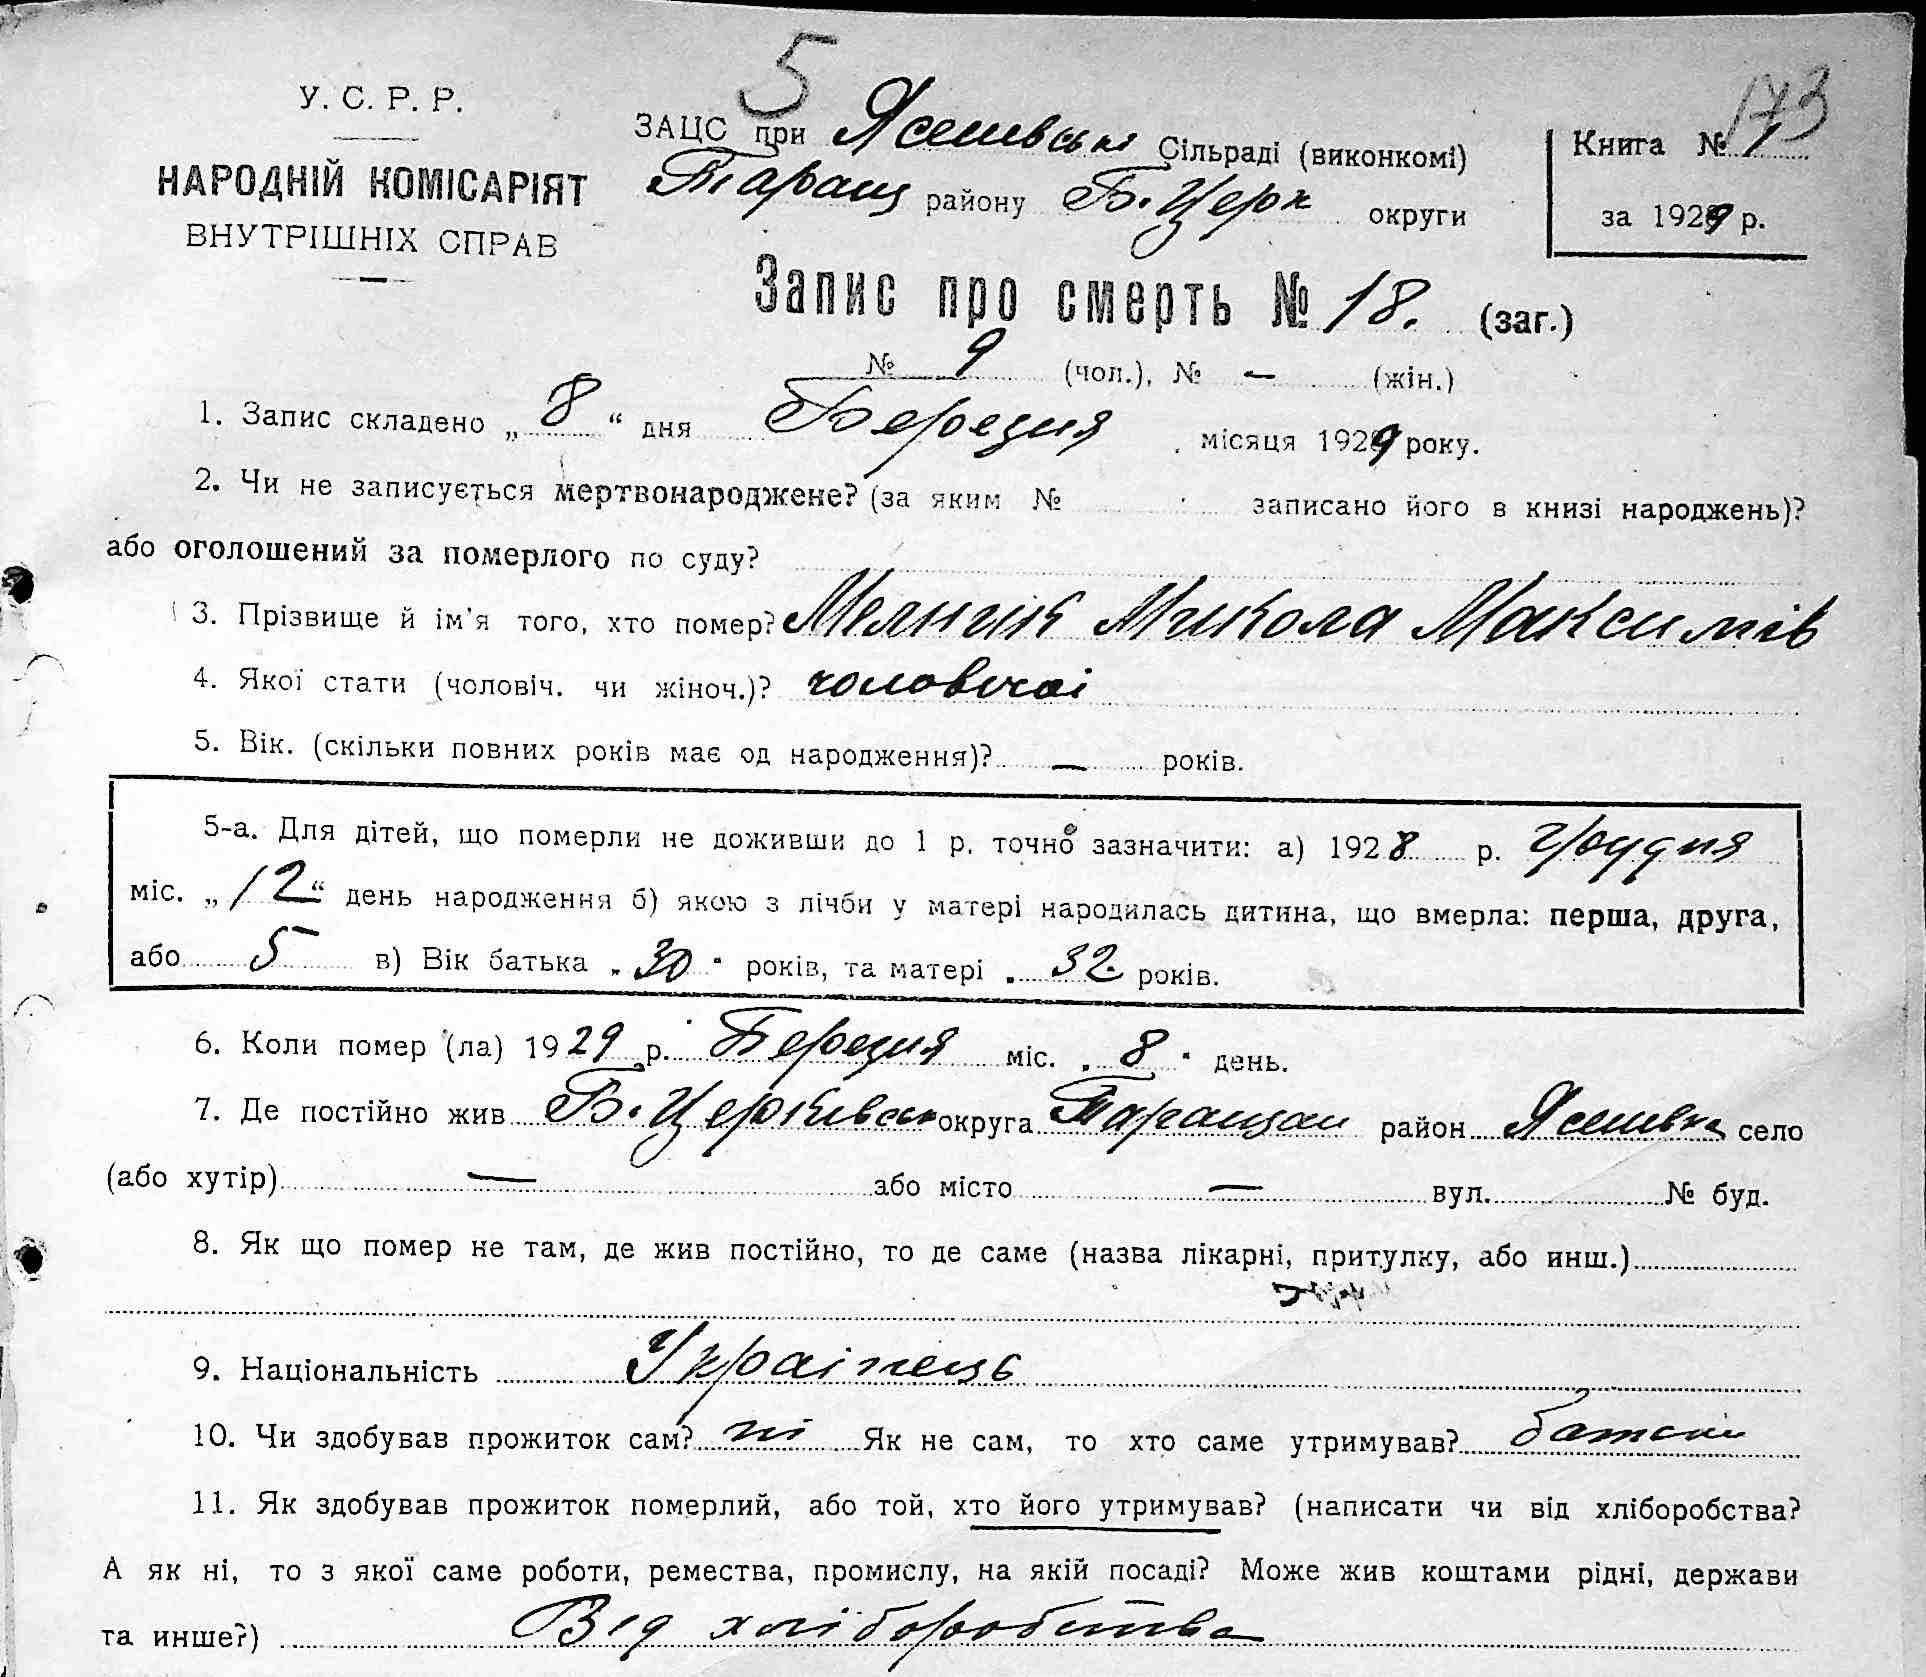 5
173
У. С. Р. Р.
НАРОДНІЙ КОМІСАРІЯТ
ВНУТРІШНІХ СПРАВ
ЗАЦС при Ясешвські Сільраді (виконкомі)
Таращ району Б. Церк округи
Книга № 1
за 1929 р.
Запис про смерть № 18. (заг.)
№ 9 (чол.), № — (жін.)
1. Запис складено „ 8 “ дня Березня місяця 1929 року.
2. Чи не записується мертвонароджене? (за яким № записано його в книзі народжень)?
або оголошений за померлого по суду?
3. Прізвище й ім'я того, хто помер? Мелник Микола Максимів
4. Якої стати (чоловіч. чи жіноч.)? чоловічоі
5. Вік. (скільки повних років має од народження)? — років.
5-а. Для дітей, що померли не доживши до 1 р. точно зазначити: а) 1928 р. Грудня
міс. „ 12 “ день народження б) якою з лічби у матері народилась дитина, що вмерла: перша, друга,
або 5 в) Вік батька „ 30 “ років, та матері „ 32 років.
6. Коли помер (ла) 1929 р. Березня міс. „ 8 “ день.
7. Де постійно жив Б. Церківськ округа Таращан район Ясешвка село
(або хутір) — або місто — вул. № буд.
8. Як що помер не там, де жив постійно, то де саме (назва лікарні, притулку, або инш.)
9. Національність Украінець
10. Чи здобував прожиток сам? ні Як не сам, то хто саме утримував? батьки
11. Як здобував прожиток померлий, або той, хто його утримував? (написати чи від хліборобства?
А як ні, то з якої саме роботи, ремества, промислу, на якій посаді? Може жив коштами рідні, держави
та инше?) Від хліборобства